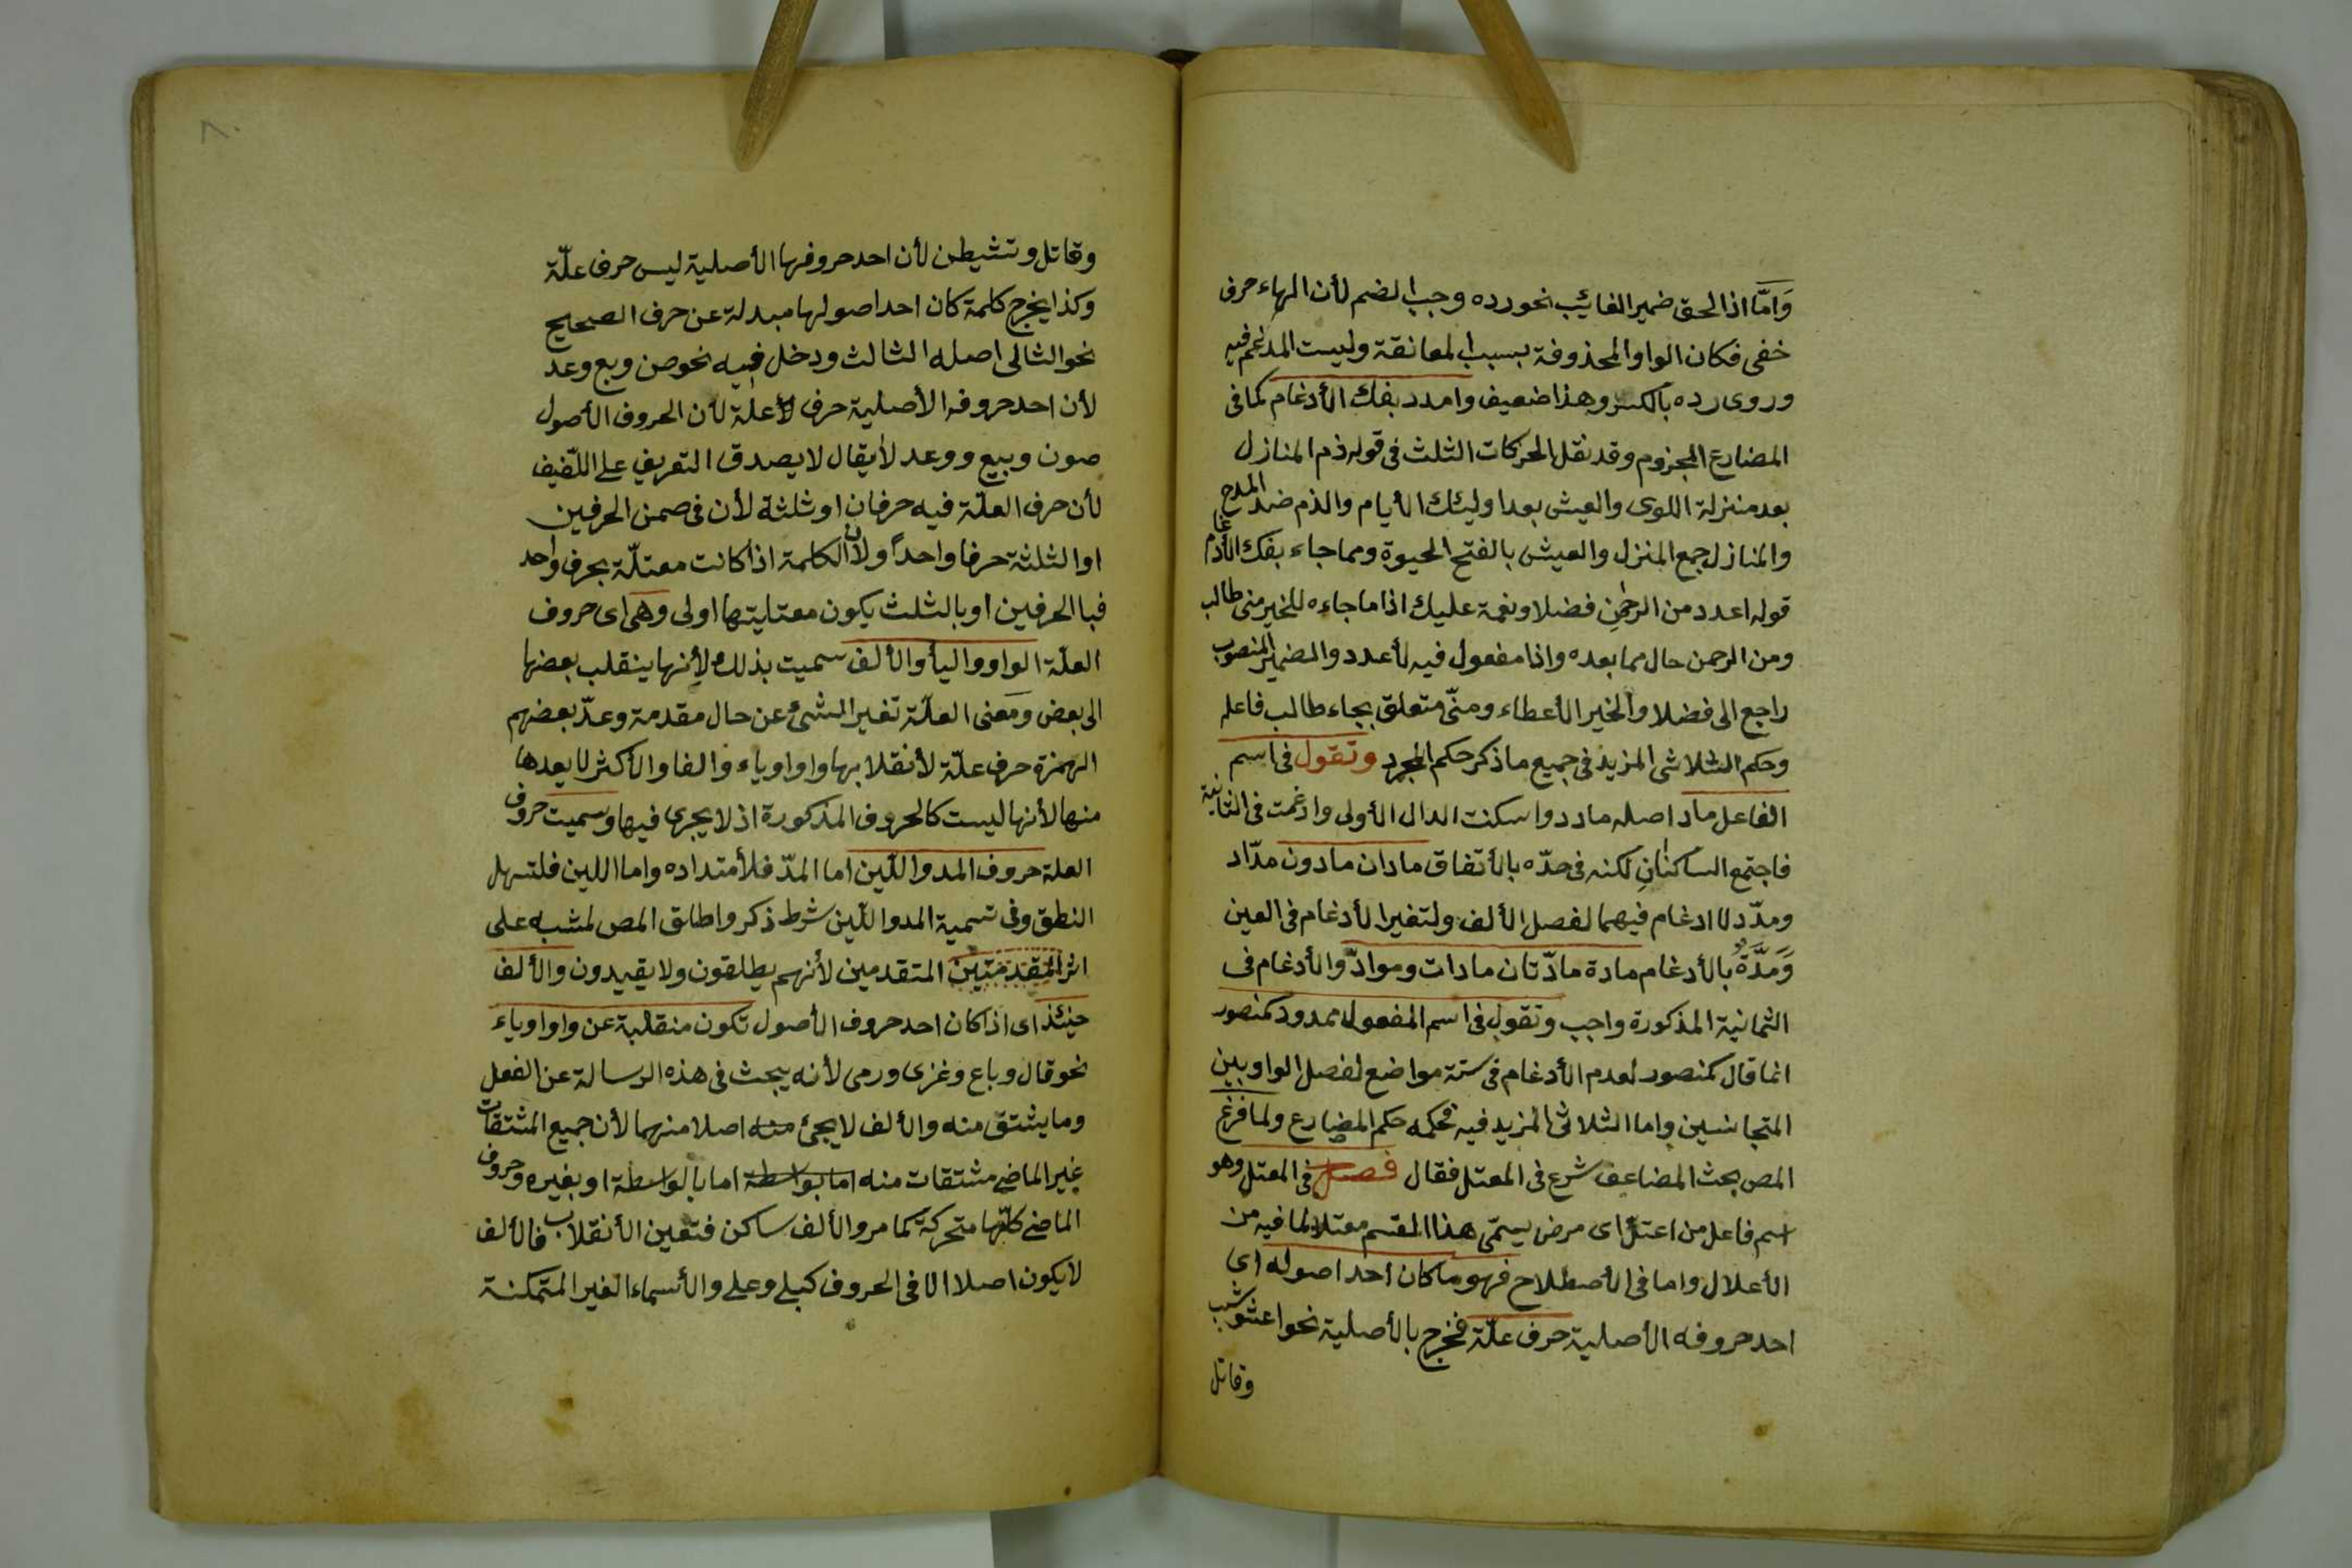 وَامَّا اذا لحق ضمير الغائب نحو رده وجب الضم لأن الهاء حرف
خفى فكان الواو المحذوفة بسبب المعانقة وليست المدغم فيه
وروى رده بالكسر وهذا ضعيف وامدد بفك الأدغام كما فى
المضارع المجزوم وقد نقل الحركات الثلث فى قوله ذم المنازل
بعد منزلة اللوى والعيش بعد اوليئك الأيام والذم ضد المدح
والمنازل جمع المنزل والعيش بالفتح الحيوة ومما جاء بفك الأدغام
قوله اعدد من الرحمن فضلا ونعمة عليك اذا ما جاءه للخير منى طالب
ومن الرحمن حال مما بعده واذا مفعول فيه لأعدد والضمير المنصوب
راجع الى فضلا والخير الأعطاء ومنّى متعلق بجاء طالب فاعله
وحكم الثلاثى المزيد فى جميع ما ذكر حكم المجرد وتقول فى اسم
الفاعل ماد اصله مادد واسكنت الدال الأولى وادغمت فى الثانية
فاجتمع الساكنانِ لكنه فى حدّه بالأتفاق مادان مادون مدّاد
ومدّد لا ادغام فيهما لفصل الألف ولتغير الأدغام فى العين
وَمَدَّةٌ بالأدغام مادة مادّتان مادات وموادّ والأدغام فى
الثمانية المذكورة واجب وتقول فى اسم المفعول ممدود كمنصور
انما قال كمنصور لعدم الأدغام فى ستة مواضع لفصل الواو بين
المتجانسين واما الثلاثى المزيد فيه فحكمه حكم المضارع ولما فرغ
المص بحث المضاعف شرع فى المعتل فقال فصل فى المعتل وهو
اسم فاعل من اعتلّ اى مرض يسمّى هذا القسم معتلا لما فيه من
الأعلال واما فى الأصطلاح فهو ما كان احد اصوله اى
احد حروفه الأصلية حرف علّة فخرج بالأصلية نحو اعشوشب
وقاتل
وقاتل وتشيطن لأن احد حروفها الأصلية ليس حرف علّة
وكذا يخرج كلمة كان احد اصولها مبدلة عن حرف الصحيح
نحو الثالى اصله الثالث ودخل فيه نحو صن وبع وعد
لأن احد حروفه الأصلية حرف علة لأن الحروف الأصول
صون وبيع ووعد لا يقال لا يصدق التعريف على اللّفيف
لأن حرف العلّة فيه حرفان او ثلثة لأن فى ضمن الحرفين
او الثلثة حرفا واحدًا ولأن الكلمة اذا كانت معتلّة بحرف واحد
فبا الحرفين او بالثلث يكون معتليتها اولى وهى اى حروف
العلّة الواو واليأ والألف سميت بذلك لأنها ينقلب بعضها
الى بعض ومعنى العلّة تغير الشئ عن حال مقدمة وعدّ بعضهم
الهمزة حرف علّة لأنقلابها واوا وياء والفا والأكثر لا يعدها
منها لأنها ليست كالحروف المذكورة اذ لا يجرى فيها وسميت حروف
العلة حروف المد واللّين اما المدّ فلأمتداده واما اللين فلتسهل
النطق وفى تسمية المد واللّين شرط ذكر واطلق المص لمشبه على
اثر المتقدمتين المتقدمين لأنهم يطلقون ولا يقيدون والألف
حينئذ اى اذا كان احد حروف الأصول تكون منقلبة عن واو او ياء
نحو قال وباع وغزى ورمى لأنه يبحث فى هذه الرسالة عن الفعل
وما يشتق منه والألف لا يجئ منه اصلا منهما لأن جميع المشتقات
غير الماضى مشتقات منه اما بواسطة اما بالواسطة او بغيره وحروف
الماضى كلّها متحركة كما مر والألف ساكن فتعين الأنقلاب فالألف
لا يكون اصلا الا فى الحروف كبلى وعلى والأسماء الغير المتمكنة